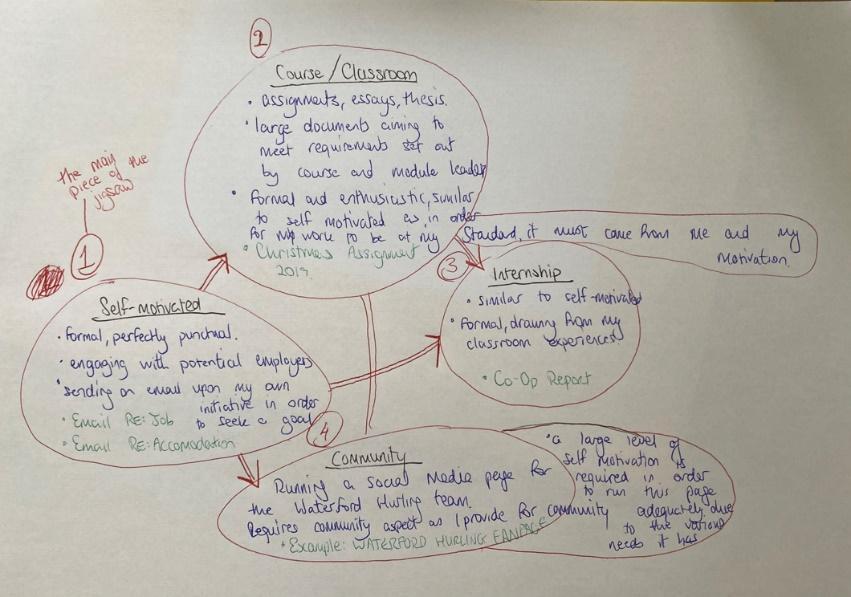 2
Course / Classroom
• assignments, essays, thesis.
• large documents aiming to
meet requirements set out
by course and module leader
• Formal and enthusiastic, similar
to self motivated as, in order
for my work to be at my Standard, it must come from me and my
motivation.
• Christmas Assignment
2019.
the main
piece of the
jigsaw
1
Self-motivated
• formal, perfectly punctual.
• engaging with potential employers
• sending an email upon my own
initiative in order
to seek a goal
• Email RE: Job
• Email RE: Accomodation
3
Internship
• similar to self-motivated
• Formal, drawing from my
classroom experiences
• Co-Op Report
4
Community
Running a Social Media page for
the Waterford Hurling team.
Requires community aspect as I provide for community
• Example: WATERFORD HURLING FANPAGE
• a large level of
self motivation is
required in order
to run this page
adequately, due
to the various
needs it has